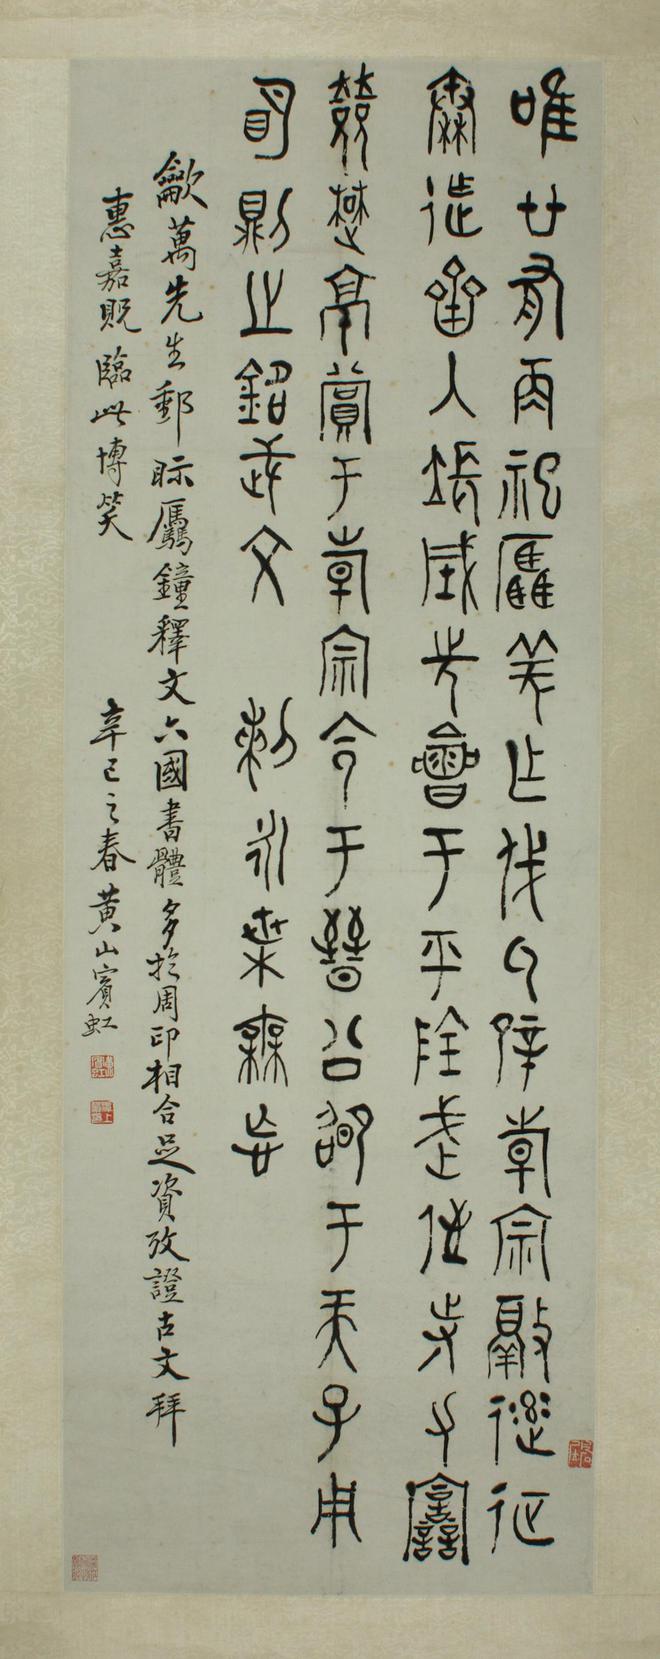 唯廿有再祀驫羌乍伐氒辟韓宗敲䢦征
秦迮齊入長城先會于平陰武侄寺力譶
敓楚京賞于韓宗令于晉公卲于天子用
明則之銘武文剌永枼無忘
龡萬先生郵眎驫鐘釋文六國書體多於周印相合足資攷證古文拜
惠嘉貺臨此博笑 辛巳之春黃山賓虹